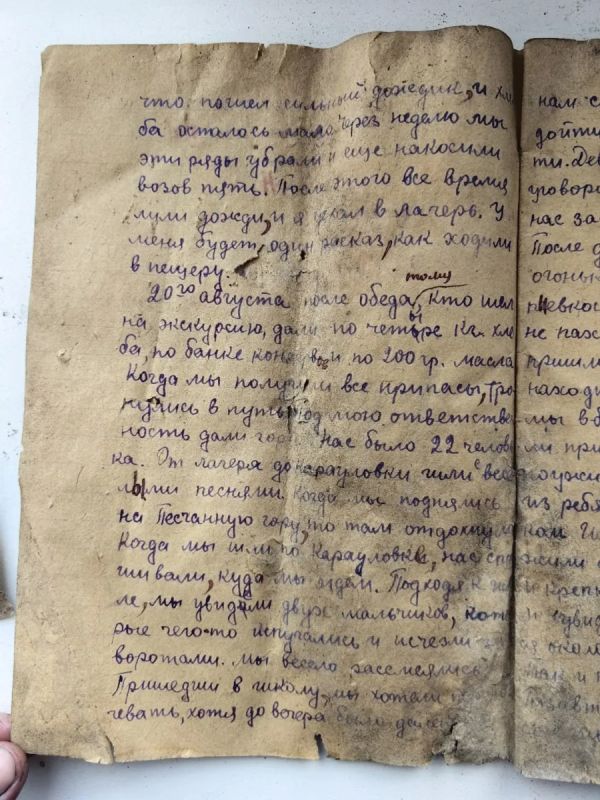 что пошел сильный дождик, и хле
ба осталось мало через неделю мы
эти ряды убрали и еще накосили
возов пять. После этого все время
лили дожди, и я ушел в лагерь. У
меня будет один расказ, как ходили
в пещеру.
20го августа после обеда, тому кто шел
на экскурсию, дали по четыре кг. хле
ба, по банке консервов и по 200 гр. масла
Когда мы получили все припасы, тро
нулись в путь. Под мою ответствен
ность дали Нас было 22 челове
ка. От лагеря до Карауловки шли с весе
лыми песнями. Когда мы поднялись
на Песчанную гору, то там отдохнули
Когда мы шли по Карауловке, нас спра
шивали, куда мы идем. Подходя к шко
ле, мы увидели двух мальчиков, кото
рые чего-то испугались и исчезли за
воротами. мы весело рассмеялись
Пришедши в школу, мы хотели
чевать, хотя до вечера было далеко
нам с
дойти
ти. Дев
уговори
нас за
После
огоньк
певко
не
пришли
находи
мы в
ли при
поужи
из ребя
кам
жили
крепк
увид
около
так и